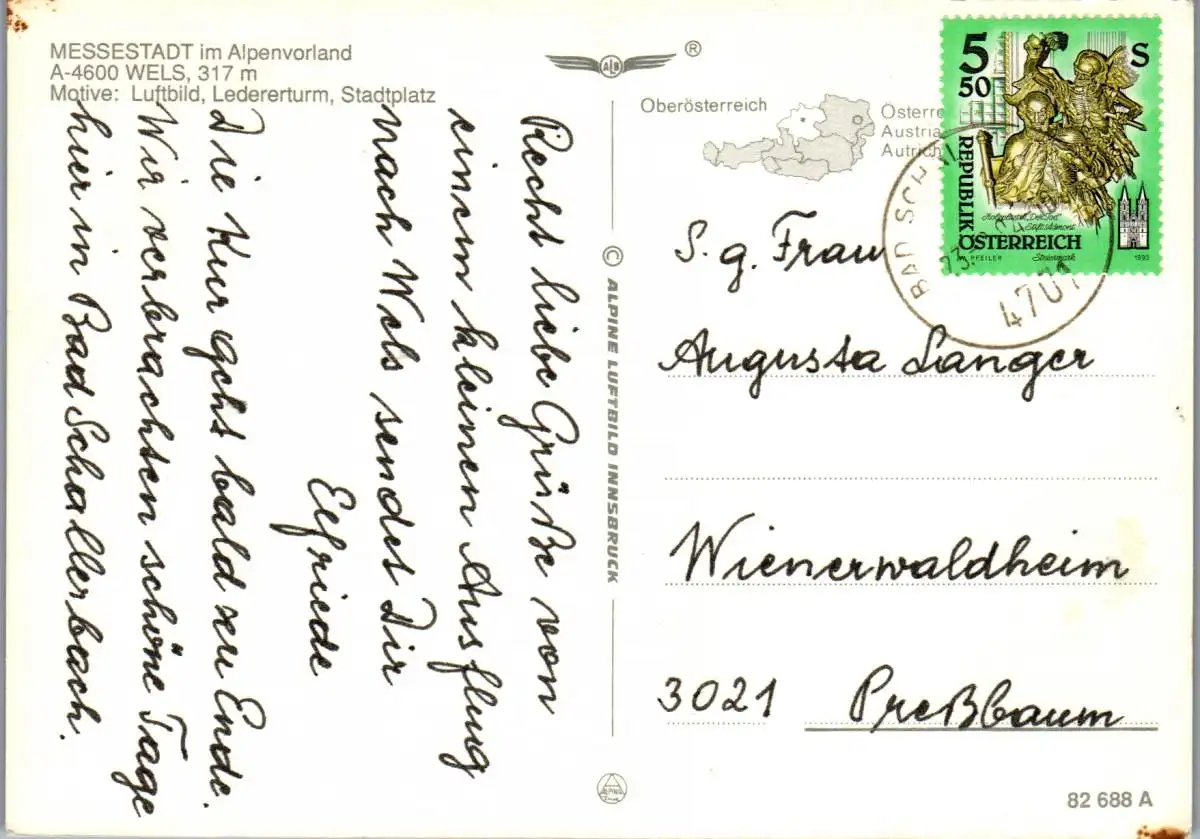 MESSESTADT im Alpenvorland
A-4600 WELS, 317 m
Motive: Luftbild, Ledererturm, Stadtplatz
Recht liebe Grüße von
einem kleinen Ausflug
nach Wels sendet Dir
Elfriede
Die Kur geht bald zu Ende.
Wir verbrachten schöne Tage
hier in Bad Schallerbach.
ALB
®
© ALPINE LUFTBILD INNSBRUCK
ALPINE
Oberösterreich
Österre
Austria
Autrich
5 50 S
REPUBLIK
ÖSTERREICH
Holzplastik „Der Tod"
Stift Admont
Steiermark
W. PFEILER
1993
BAD SCH
4701
S. g. Frau
Augusta Langer
Wienerwaldheim
3021 Preßbaum
82 688 A